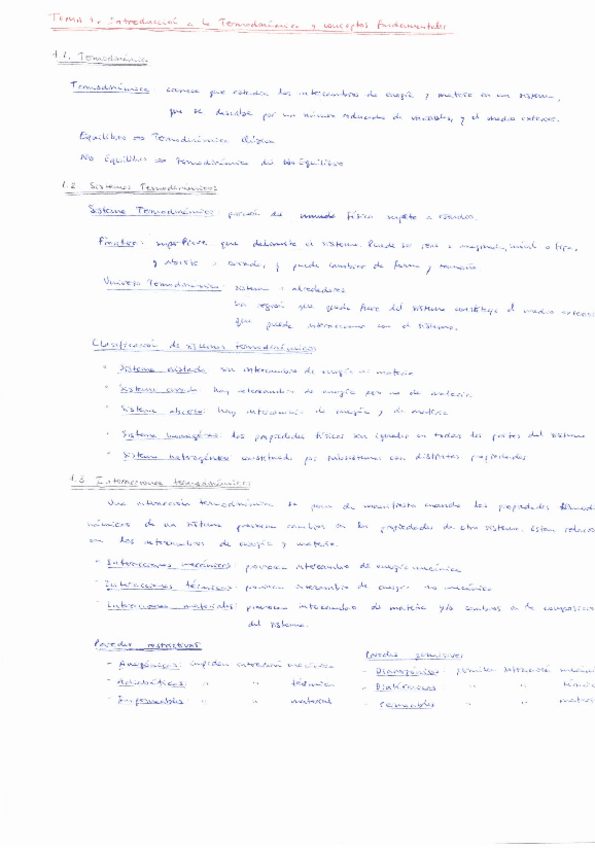 TEMA 1. Introducción a la Termodinámica y conceptos fundamentales
1.1. Termodinámica
Termodinámica: ciencia que estudia los intercambios de energía y materia en un sistema,
que se describe por un número reducido de variables, y el medio exterior.
Equilibrio Termodinámica clásica
No Equilibrio Termodinámica del No Equilibrio
1.2. Sistemas Termodinámicos
Sistema Termodinámico: porción de mundo físico sujeto a estudio.
Frontera: superficie que delimita el sistema. Puede ser real o imaginaria, móvil o fija,
y abierta o cerrada, y puede cambiar de forma y tamaño
Universo Termodinámico: sistema + alrededores
La región que queda fuera del sistema constituye el medio exterior
que puede interaccionar con el sistema.
Clasificación de sistemas termodinámicos
- Sistema aislado: sin intercambio de energía ni materia
- Sistema cerrado: hay intercambio de energía pero no de materia
- Sistema abierto: hay intercambio de energía y de materia
- Sistema homogéneo: las propiedades físicas son iguales en todas las partes del sistema
- Sistema heterogéneo: constituido por subsistemas con distintas propiedades
1.3 Interacciones termodinámicas
Una interacción termodinámica se pone de manifiesto cuando las propiedades termodi
námicas de un sistema provocan cambios en las propiedades de otro sistema. Están relacio
con los intercambios de energía y materia.
- Interacciones mecánicas: provocan intercambio de energía mecánica
- Interacciones térmicas: provocan intercambio de energía no mecánica
- Interacciones materiales: provocan intercambio de materia y/o cambios en la composición
del sistema.
Paredes restrictivas
- Anergónicas: impiden interacción mecánica
- Adiabáticas: " " térmica
- Impermeables: " " material
Paredes permisivas
- Diatérgicas: permiten interacción mecánic
- Diatérmicas " " térmic
- Permeables " " materi